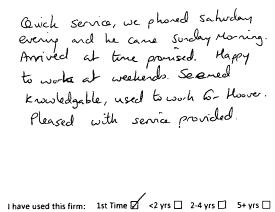 Quick service, we phoned saturday
evening and he came sunday morning.
Arrived at time promised. Happy
to work at weekends. Seemed
knowledgable, used to work for Hoover.
Pleased with service provided.
I have used this firm: 1st Time ☑ <2 yrs ☐ 2-4 yrs ☐ 5+ yrs ☐